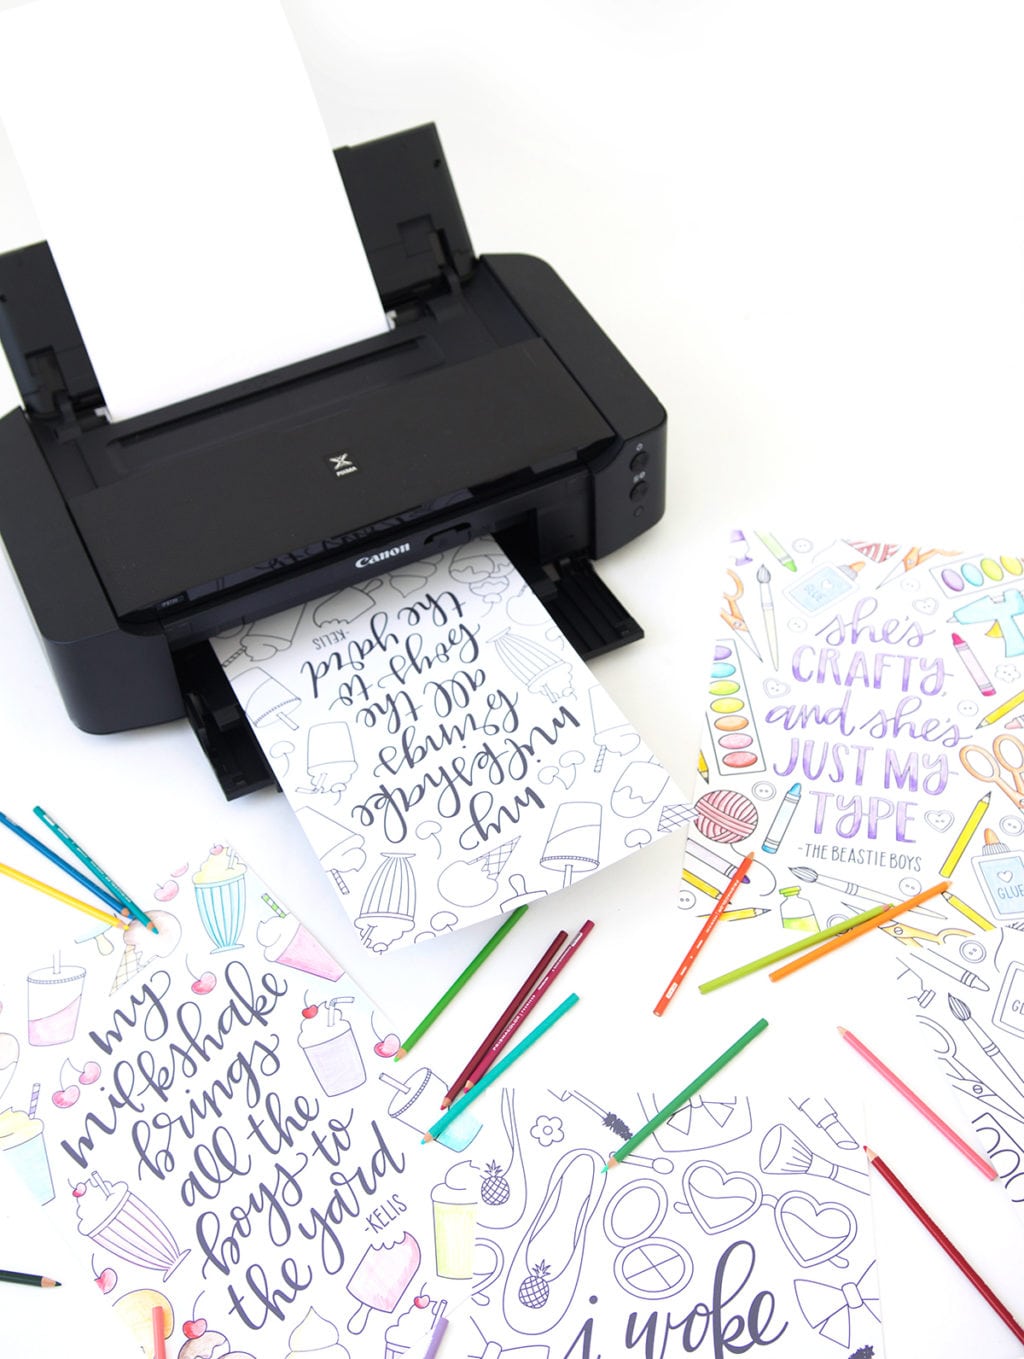 PIXMA
Canon
my
milkshake
brings
all the
boys to
the yard
-KELIS
she's
CRAFTY,
and she's
JUST MY
TYPE
-THE BEASTIE BOYS
GLUE
GLUE
my
milkshake
brings
all the
boys to
the yard
-KELIS
i woke